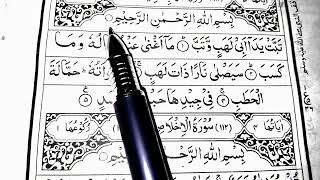 بِسْمِ اللهِ الرَّحْمٰنِ الرَّحِيْمِ
تَبَّتْ يَدَاۤ اَبِيْ لَهَبٍ وَّتَبَّ ۞ مَاۤ اَغْنٰى لُهٗ وَمَا
كَسَبَ ۞ سَيَصْلٰى نَارًا ذَاتَ لَهَبٍ اَتُهٗ حَمَّالَةَ
الْحَطَبِ ۞ فِيْ جِيْدِهَا حَبْ سَدٍ ۞
اٰيَاتُهَا ٤ (١١٢) سُوْرَةُ الْاِخْلَا رُكُوْعُهَا ١
بِسْمِ اللهِ الرَّحْ الرَّحِيْمِ